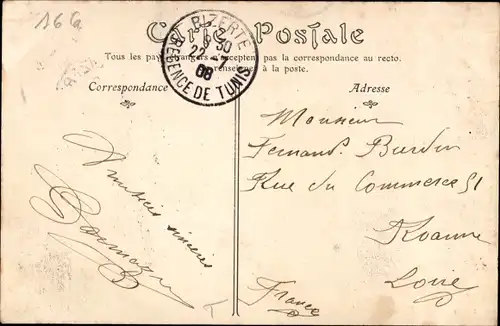 166
Carte Postale
Tous les pays étrangers n'acceptent pas la correspondance au recto.
renseigner à la poste.
BIZERTE
9 30
22 -7
08
REGENCE DE TUNIS
Correspondance
Adresse
Amitiés sincères
Monsieur
Fernand Burdin
Rue du Commerce 51
Roanne
Loire
France